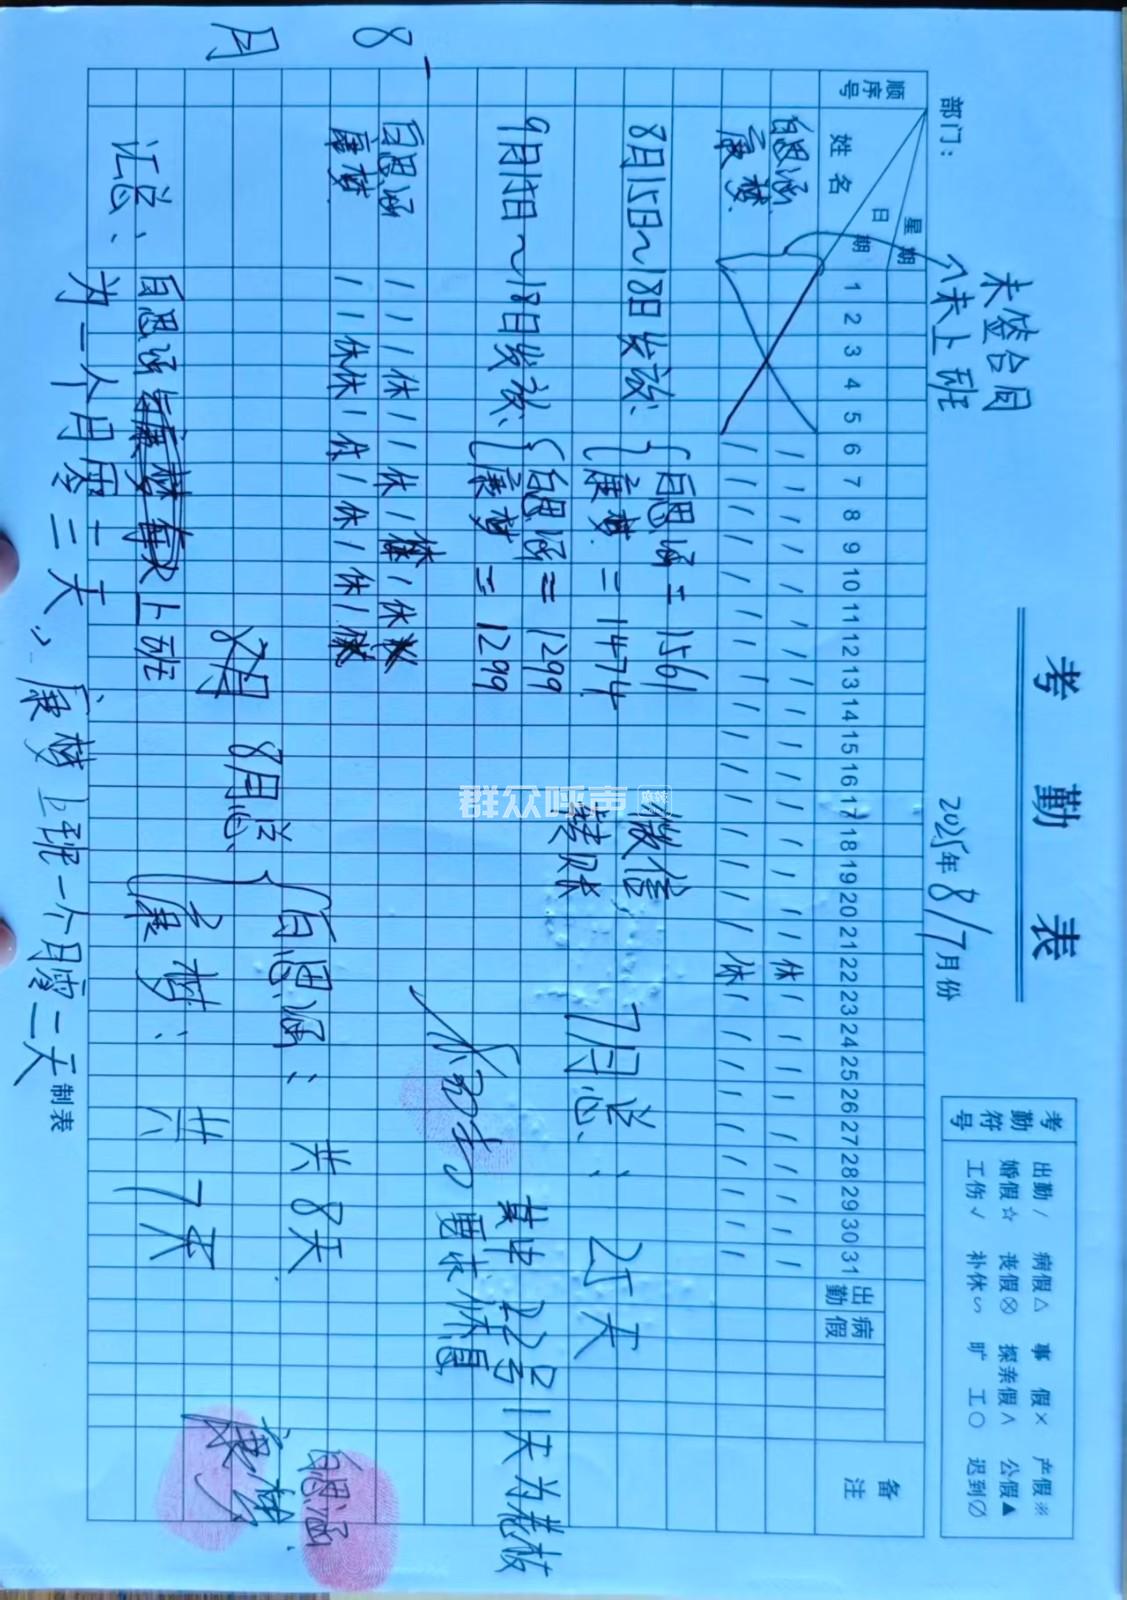 考勤表
部门：
2025年8/7月份
未签合同
未上班
考勤符号
出勤 / 病假△ 事假× 产假※
婚假☆ 丧假⊗ 探亲假∧ 公假▲
工伤√ 补休∽ 旷工○ 迟到∅
顺序号 姓名 星期 日期 出勤 病假 备注
1 2 3 4 5 6 7 8 9 10 11 12 13 14 15 16 17 18 19 20 21 22 23 24 25 26 27 28 29 30 31
自思涵 / / / / / / / / / / / / / / / 休 / / / / / / / / /
康梦 / / / / / / / / / / / / / / / / 休 / / / / / / / / /
8月15日~18日发放：
自思涵=1561
康梦=1474
微信转账
7月总：25天
9月15日~18日发放：
自思涵=1299
康梦=1299
其中22号1天为老板要求休息
8月
自思涵 / / / 休 / / 休 / 休 / 休
康梦 / / 休 休 / 休 / 休 / 休 /
8月总
自思涵：共8天
康梦：共7天
自思涵
康梦
汇总：自思涵
上班
为一个月零三天，康梦上班一个月零二天
制表
群众呼声